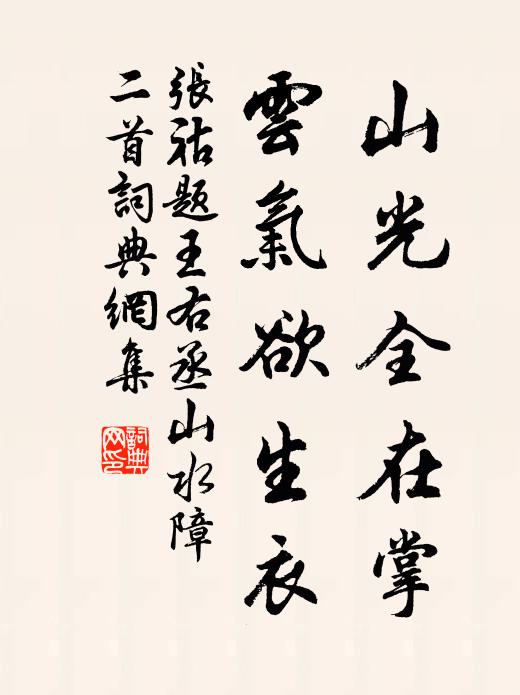 山光全在掌
雲氣欲生衣
張祜题王右丞山水障
二首詞典網集
詞典网印